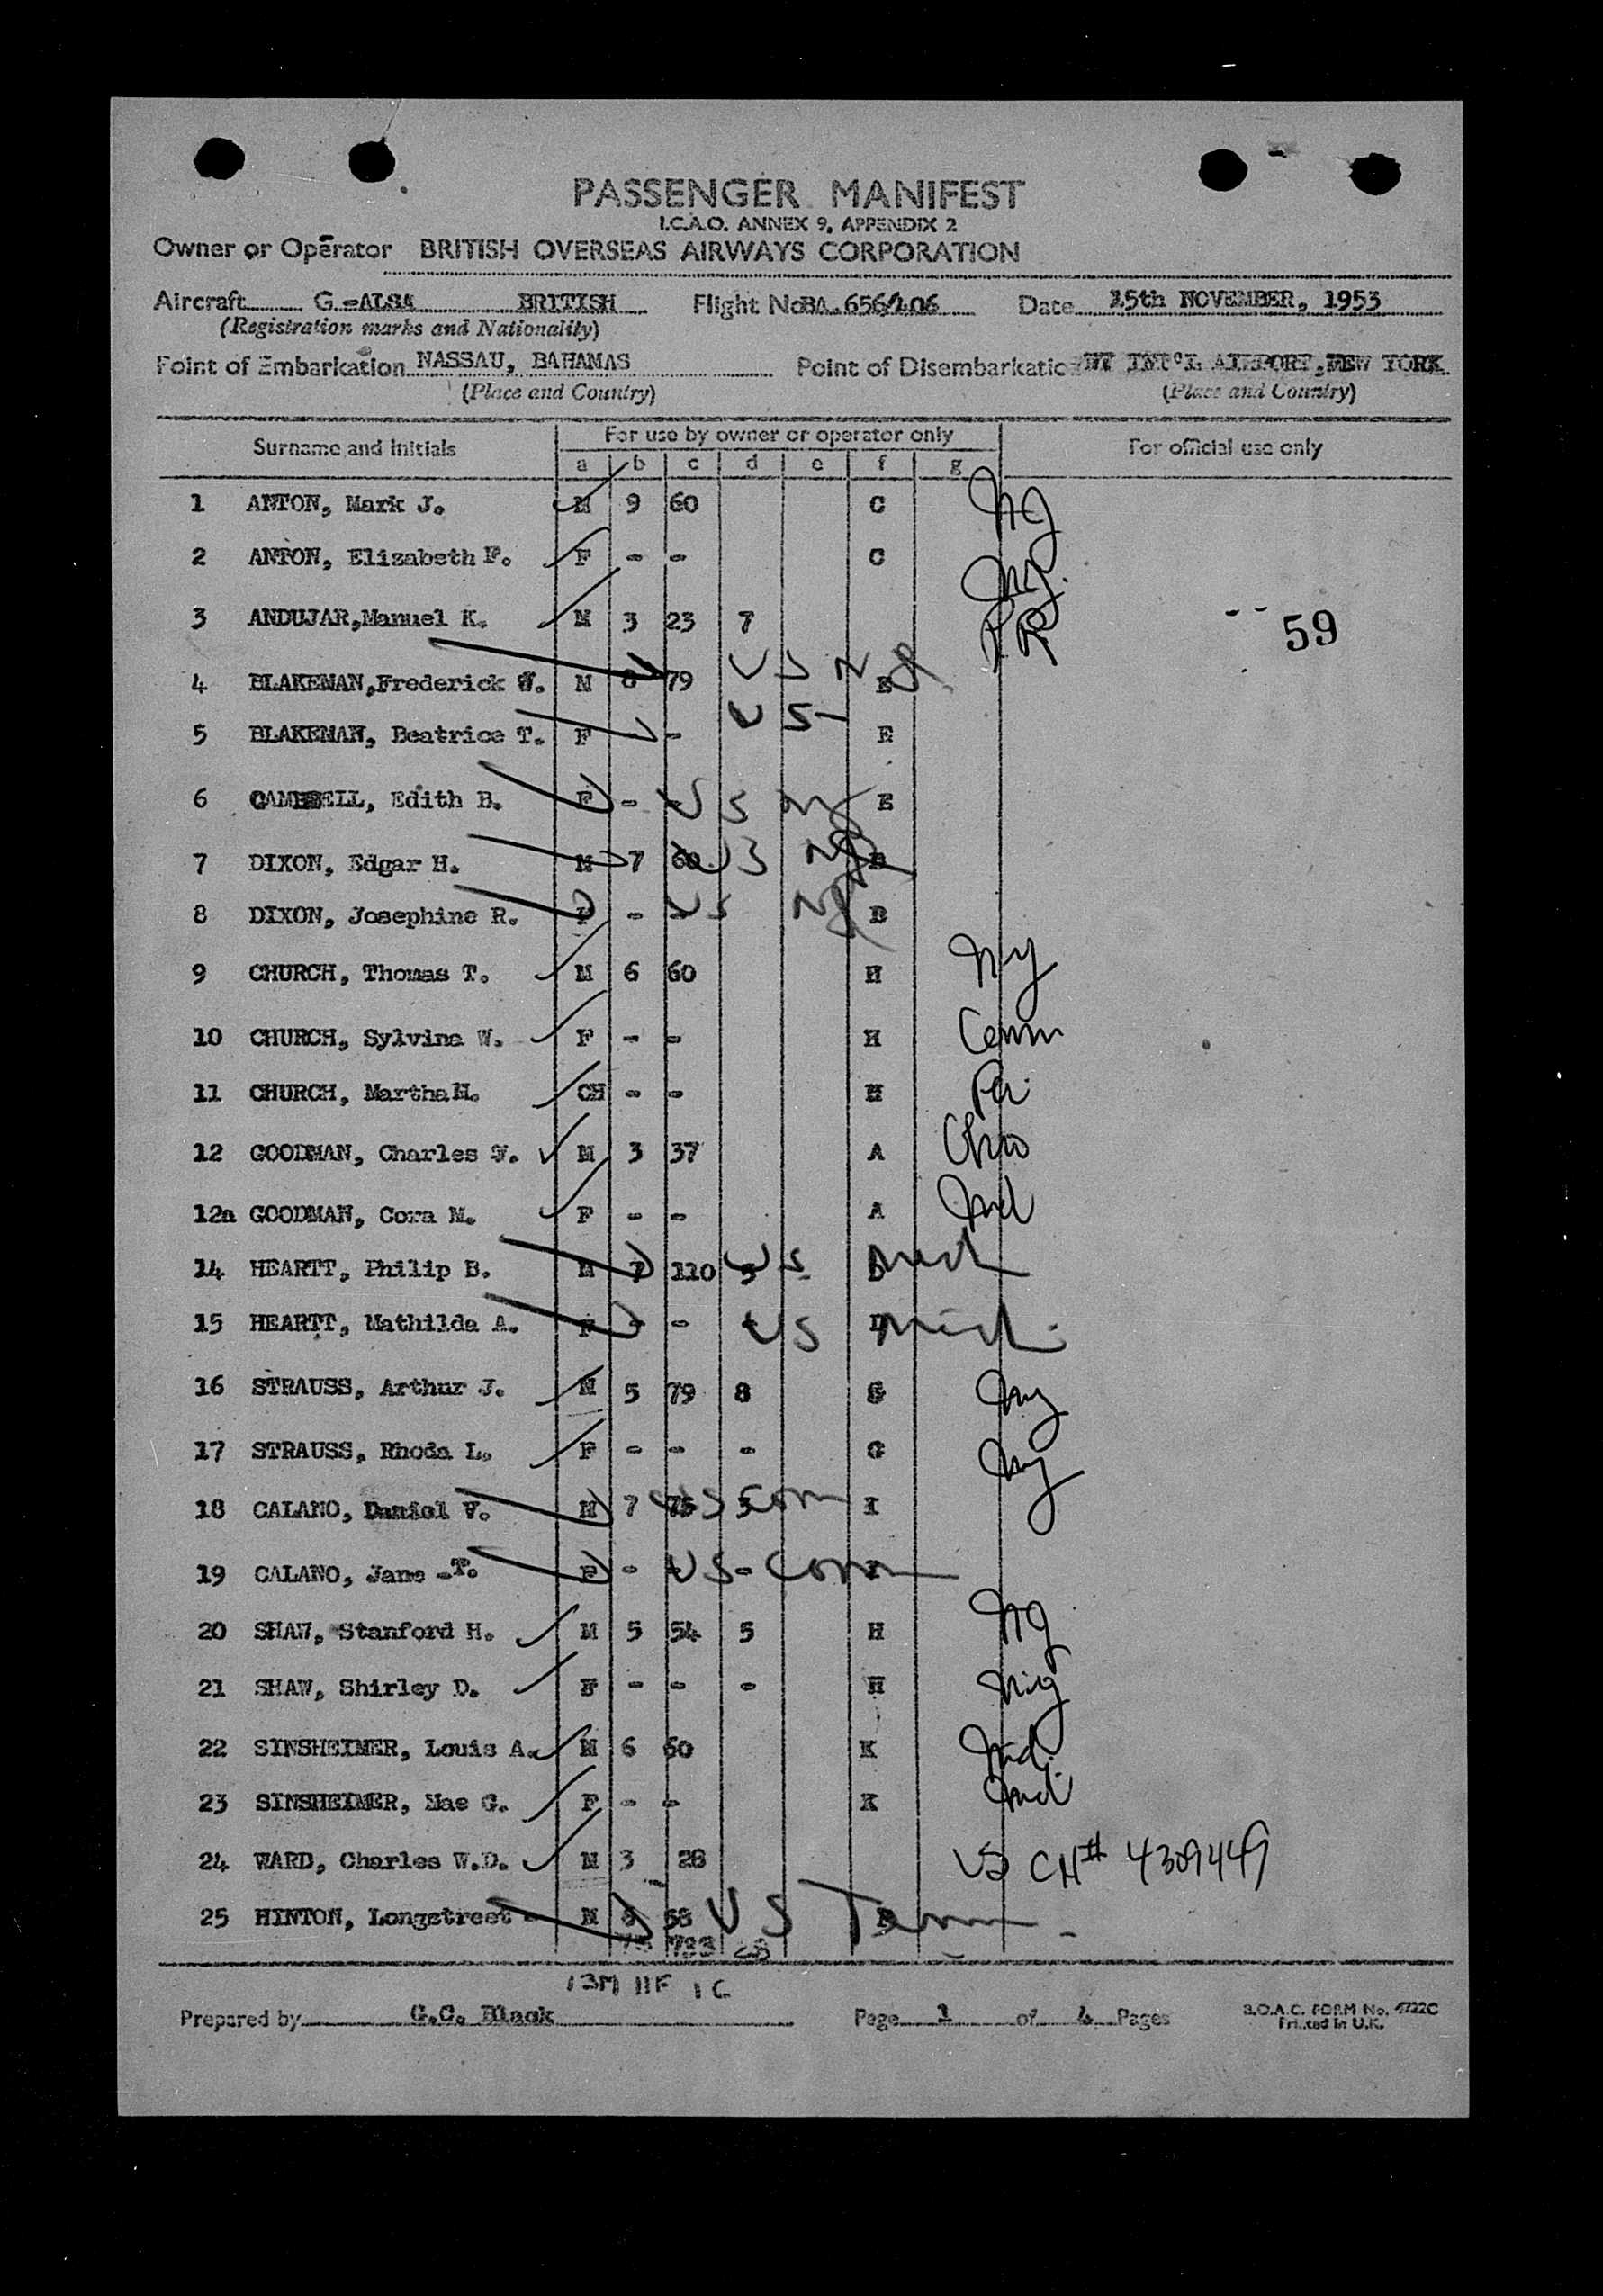 PASSENGER MANIFEST
I.C.A.O. ANNEX 9, APPENDIX 2
Owner or Operator BRITISH OVERSEAS AIRWAYS CORPORATION
Aircraft G-ALSA BRITISH Flight No BA.656/406 Date 15th NOVEMBER, 1953
(Registration marks and Nationality)
Point of Embarkation NASSAU, BAHAMAS Point of Disembarkatio NY INT'L AIRPORT, NEW YORK
(Place and Country) (Place and Country)
Surname and Initials For use by owner or operator only For official use only
a b c d e f g
1 ANTON, Mark J. M 9 60 C NJ
2 ANTON, Elizabeth F. F - - C NJ.
3 ANDUJAR, Manuel K. M 3 23 7 P.R.
59
4 BLAKEMAN, Frederick W. M 8 79 US NY E
5 BLAKEMAN, Beatrice T. F - US - E
6 CAMPBELL, Edith B. F - - US NY E
7 DIXON, Edgar H. M 7 60 US NY B
8 DIXON, Josephine R. F - - US NY B
9 CHURCH, Thomas T. M 6 60 H NY
10 CHURCH, Sylvina W. F - - H Conn
11 CHURCH, Martha H. CH - - H Pa.
12 GOODMAN, Charles W. M 3 37 A Ohio
12a GOODMAN, Cora M. F - - A Ind
14 HEARTT, Philip B. M 7 110 5 US D Mich
15 HEARTT, Mathilda A. F - - - US D Mich.
16 STRAUSS, Arthur J. M 5 79 8 G NY
17 STRAUSS, Rhoda L. F - - - G NY
18 CALANO, Daniel V. M 7 75 3 US Conn I
19 CALANO, Jane -T. F - US - Conn I
20 SHAW, Stanford H. M 5 54 5 H NY
21 SHAW, Shirley D. F - - - H NY
22 SINSHEIMER, Louis A. M 6 60 K Ind.
23 SINSHEIMER, Mae G. F - - K Ind
24 WARD, Charles W.D. M 3 28 US CH# 4309449
25 HINTON, Longstreet - M 5 58 US Tenn
783 28
13M 11F 1C
Prepared by G.C. Black Page 1 of 4 Pages B.O.A.C. FORM No. 4722C
Printed in U.K.